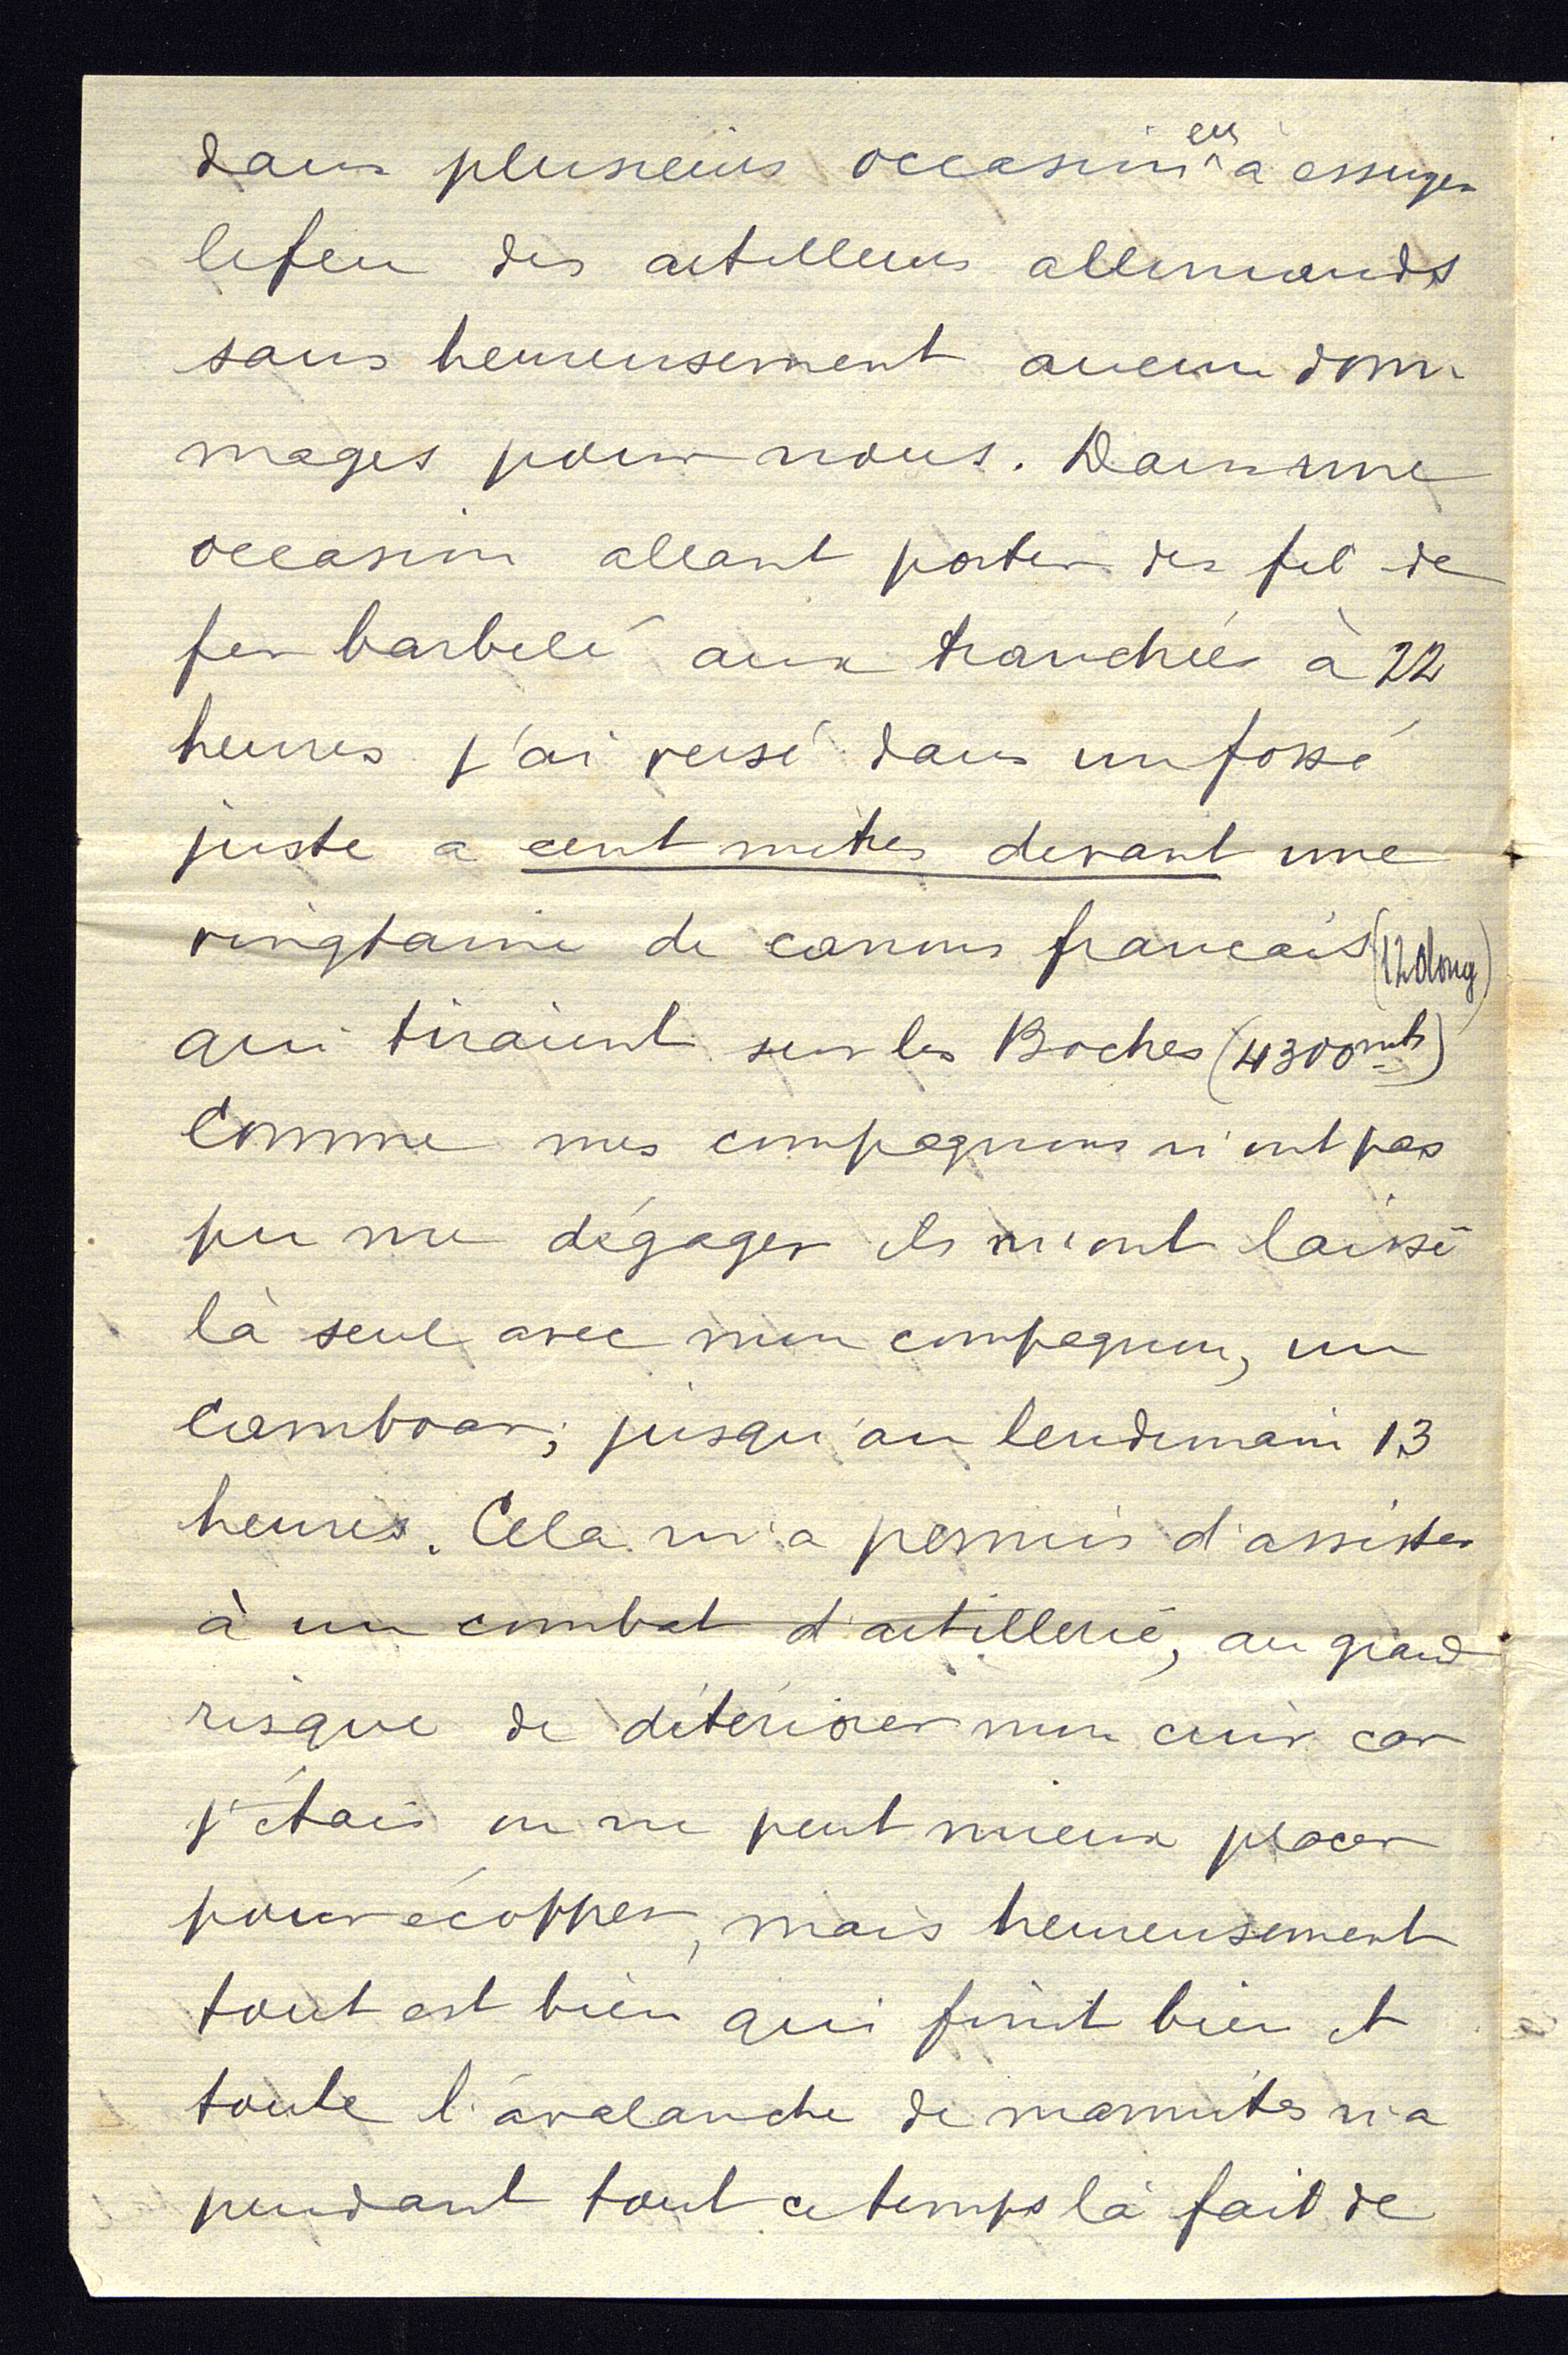 dans plusieurs occasions eu à essuyer
le feu des artilleurs allemands
sans heureusement aucun dom
mages pour nous. Dans une
occasion allant porter des fil de
fer barbelé aux tranchées à 22
heures j'ai versé dans un fossé
juste a cent mètres devant une
vingtaine de canons francais (120 long)
qui tiraient sur les Boches (4300 mts)
Comme mes compagnons n'ont pas
pu me dégager ils m'ont laissé
là seul avec mon compagnon, un
jusqu'au lendemain 13
heures. Cela m'a permis d'assister
à un combat d'artillerie, au grand
risque de détériorer mon cuir car
j'étais on ne peut mieux placer
pour écopper, mais heureusement
tout est bien qui finit bien et
toute l'avalanche de marmites n'a
pendant tout ce temps là fait de